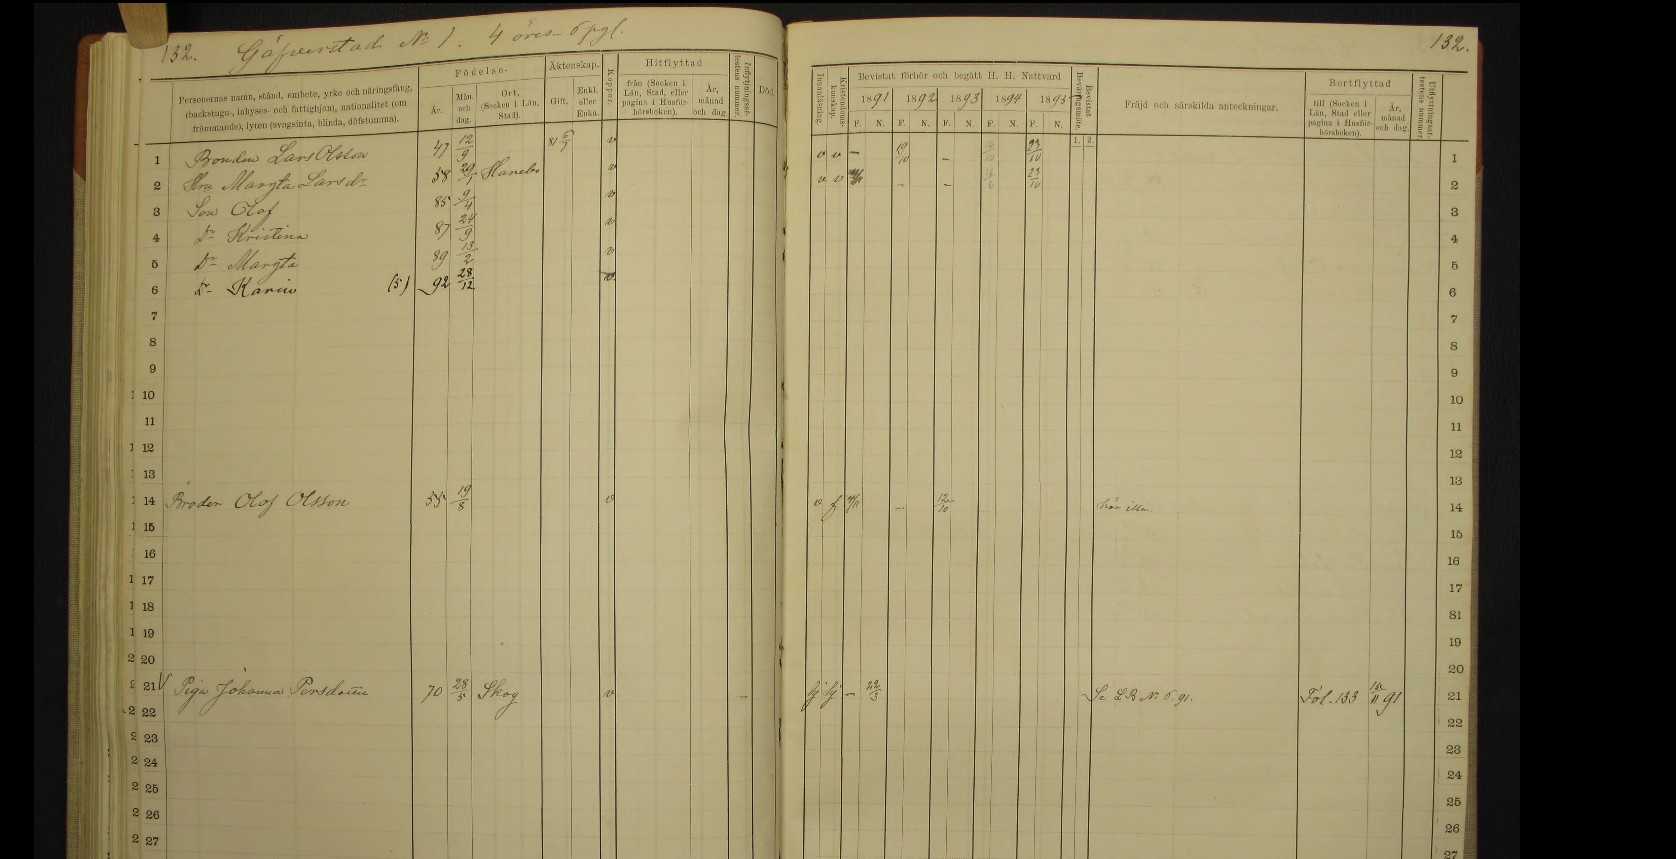 132. Gåfverstad No 1. 4 öres 6 pgl. 132.
Personernas namn, stånd, embete, yrke och näringsfång,
(backstugu-, inhyses- och fattighjon), nationalitet (om
främmande), lyten (svagsinta, blinda, döfstumma).
Födelse-
År.
Mån. och dag.
Ort, (Socken i Län, Stad).
Äktenskap.
Gift.
Enkl. eller Enka.
Koppor.
Hitflyttad
från (Socken i Län, Stad, eller pagina i Husförhörsboken).
År, månad och dag.
Inflyttningsattestens nummer.
Död.
Innanläsning.
Kristendomskunskap.
Bevistat förhör och begått H. H. Nattvard
1891 1892 1893 1894 1895
F. N. F. N. F. N. F. N. F. N.
Bevistat Beväringsmöte.
1. 2.
Fräjd och särskilda anteckningar.
Bortflyttad
till (Socken i Län, Stad eller pagina i Husförhörsboken).
År, månad och dag.
Utflyttningsattestens nummer.
1 Bonden Lars Olsson 47 12/9 v v v – 23/10 1
2 Hu Margta Larsdr 58 29/1 Hanebo v v v – – 23/10 2
3 Son Olof 85 9/4 v 3
4 Dr Kristina 87 24/9 v 4
5 Dr Margta 89 13/2 v 5
6 Dr Karin (5) 92 28/12 v 6
7 7
8 8
9 9
10 10
11 11
12 12
13 13
14 Broder Olof Olsson 55 19/8 v v f – 12/10 hör illa. 14
15 15
16 16
17 17
18 81
19 19
20 20
21 Pigan Johanna Persdotter 70 28/5 Skog v – – 22/3 Se L.B. No 6 91. Fol. 133 91 21
22 22
23 23
24 24
25 25
26 26
27 27